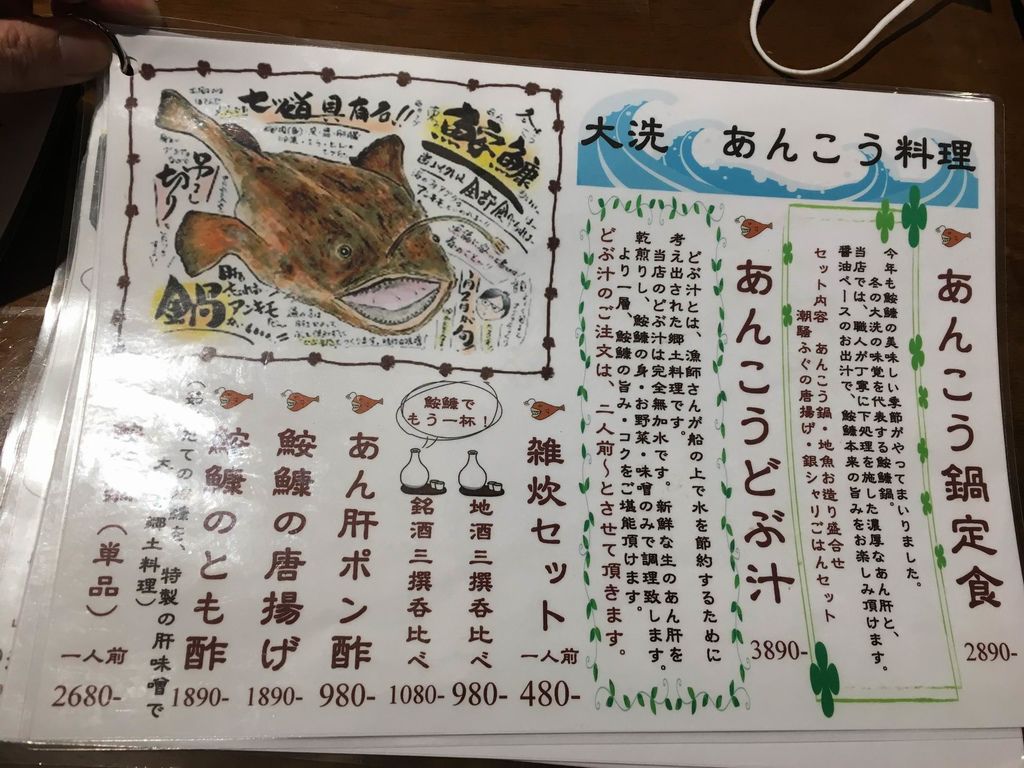 大洗 あんこう料理
あんこう鍋定食
2890-
今年も鮟鱇の美味しい季節がやってまいりました。
冬の大洗の味覚を代表する鮟鱇鍋。
当店では、職人が丁寧に下処理を施した濃厚なあん肝と、
醤油ベースのお出汁で、鮟鱇本来の旨みをお楽しみ頂けます。
セット内容 あんこう鍋・地魚お造り盛合せ
潮騒ふぐの唐揚げ・銀シャリごはんセット
あんこうどぶ汁
3890-
どぶ汁とは、漁師さんが船の上で水を節約するために
考え出された郷土料理です。
当店のどぶ汁は完全無加水です。新鮮な生のあん肝を
乾煎りし、鮟鱇の身・お野菜・味噌のみで調理致します。
より一層、鮟鱇の旨み・コクをご堪能頂けます。
どぶ汁のご注文は、二人前～とさせて頂きます。
七つ道具有名!!
鮟鱇
吊るし切り
鍋
アンキモ
雑炊セット 一人前
480-
鮟鱇で
もう一杯！
地酒三撰呑比べ
980-
銘酒三撰呑比べ
1080-
あん肝ポン酢
980-
鮟鱇の唐揚げ
1890-
鮟鱇のとも酢
1890-
たての鮟鱇を、特製の肝味噌で
郷土料理)
(単品) 一人前
2680-